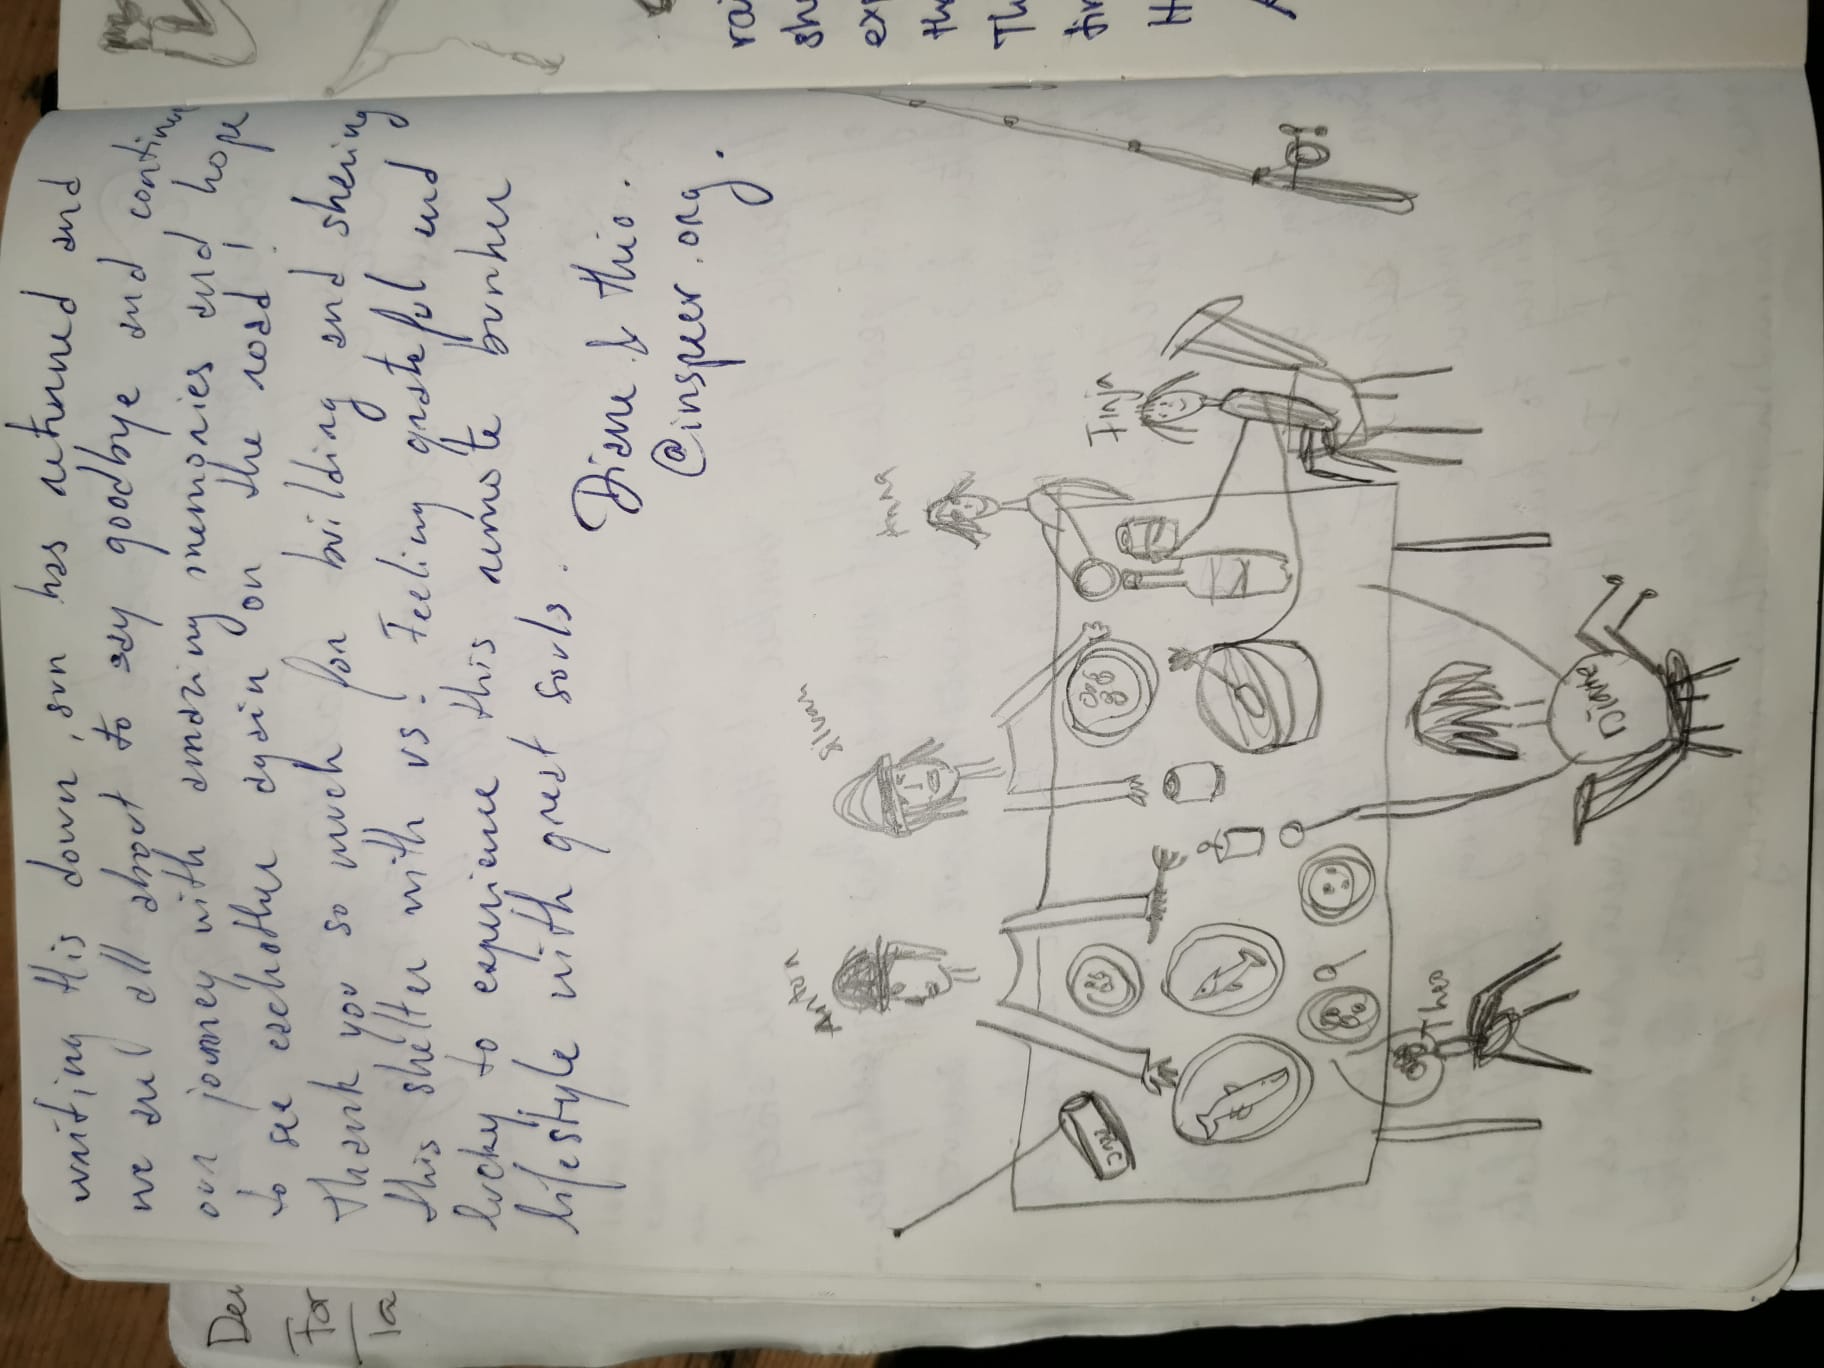 writing this down, sun has returned and
we are all about to say goodbye and continu
our journey with amazing memories and hope
to see eachother again on the road!
thank you so much for building and shering
this shelter with us! Feeling grateful and
lucky to experience this remote bunker
lifestyle with great souls.
Diane & thio.
@insperer.org.
Anton
Silvan
Anna
Finja
Theo
Diane
De
For
Ia
rai
sh
exp
th
Th
fir
H